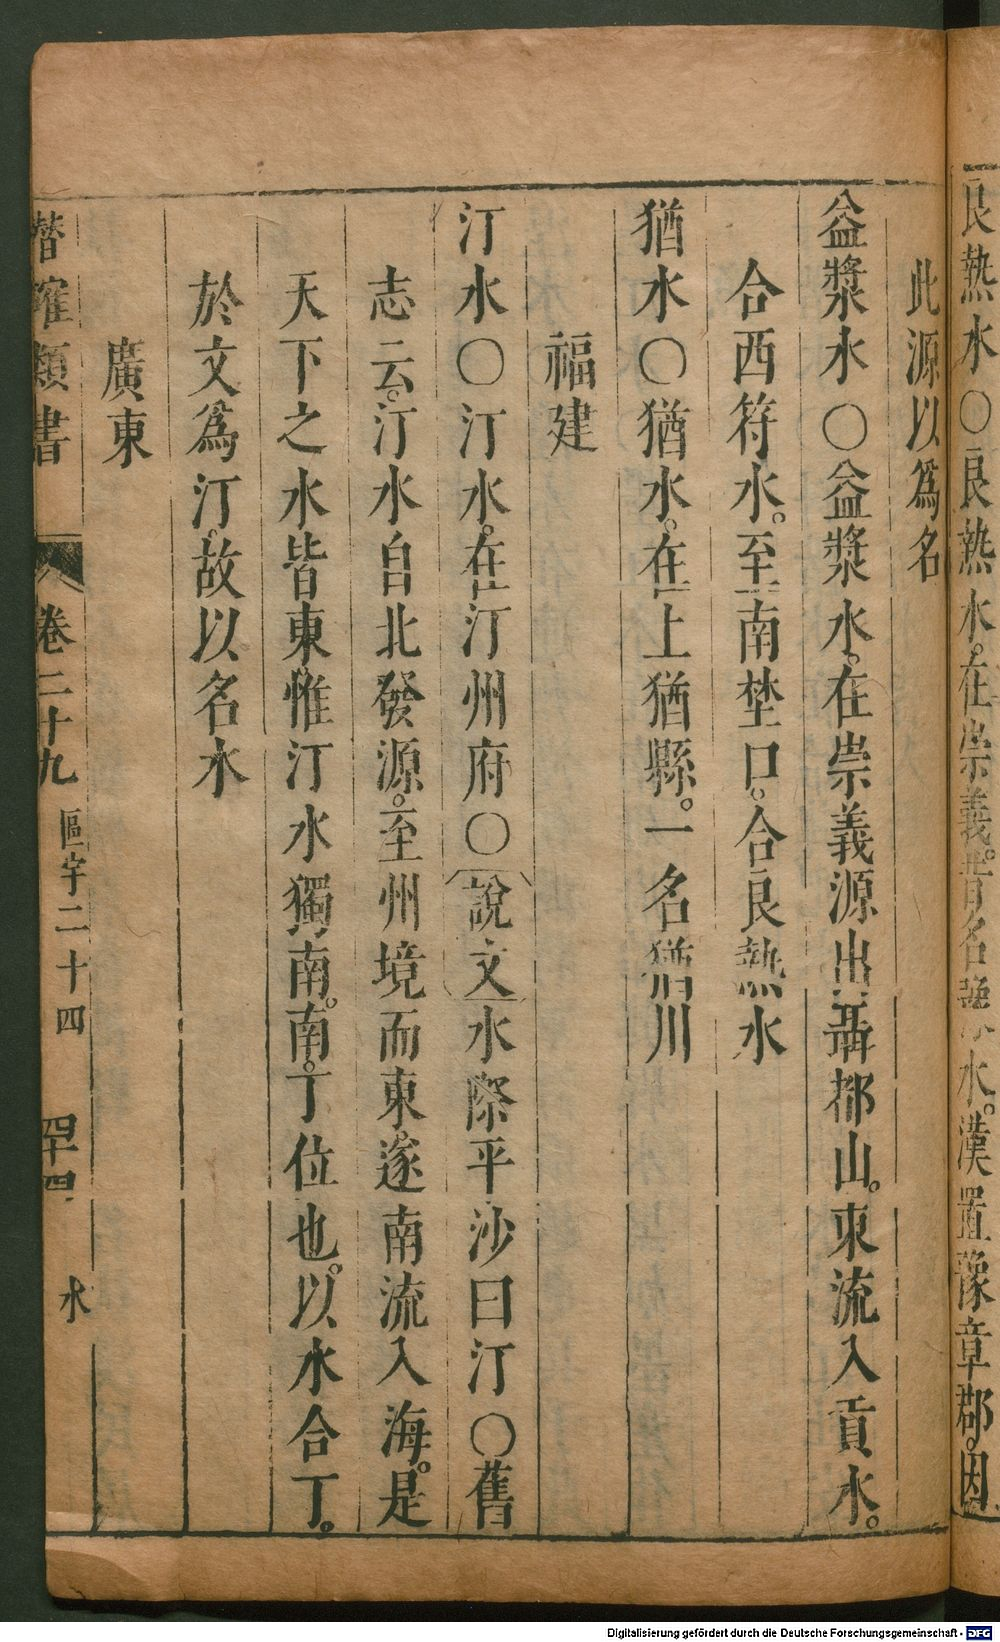 良熱水○良熱水。在崇義。昔名豫水。漢置豫章郡。因
此源以爲名
益漿水○益漿水。在崇義源出聶都山。東流入貢水。
合西符水。至南埜口。合良熱水
猶水○猶水。在上猶縣。一名猶川
福建
汀水○汀水。在汀州府○說文水際平沙曰汀○舊
志云。汀水自北發源。至州境而東。遂南流入海。是
天下之水皆東。惟汀水獨南。南。丁位也。以水合丁。
於文爲汀。故以名水
廣東
潛確類書 卷二十九 區宇二十四 四十四 水
Digitalisierung gefördert durch die Deutsche Forschungsgemeinschaft - DFG